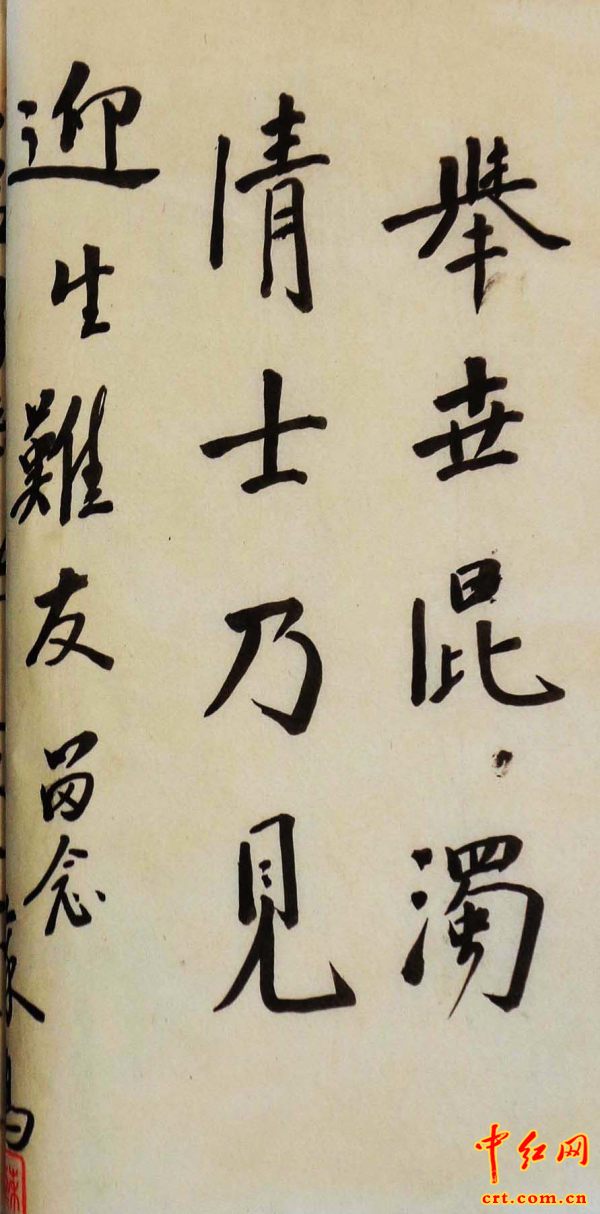 舉世混濁
清士乃見
迎生難友留念
中红网
crt.com.cn